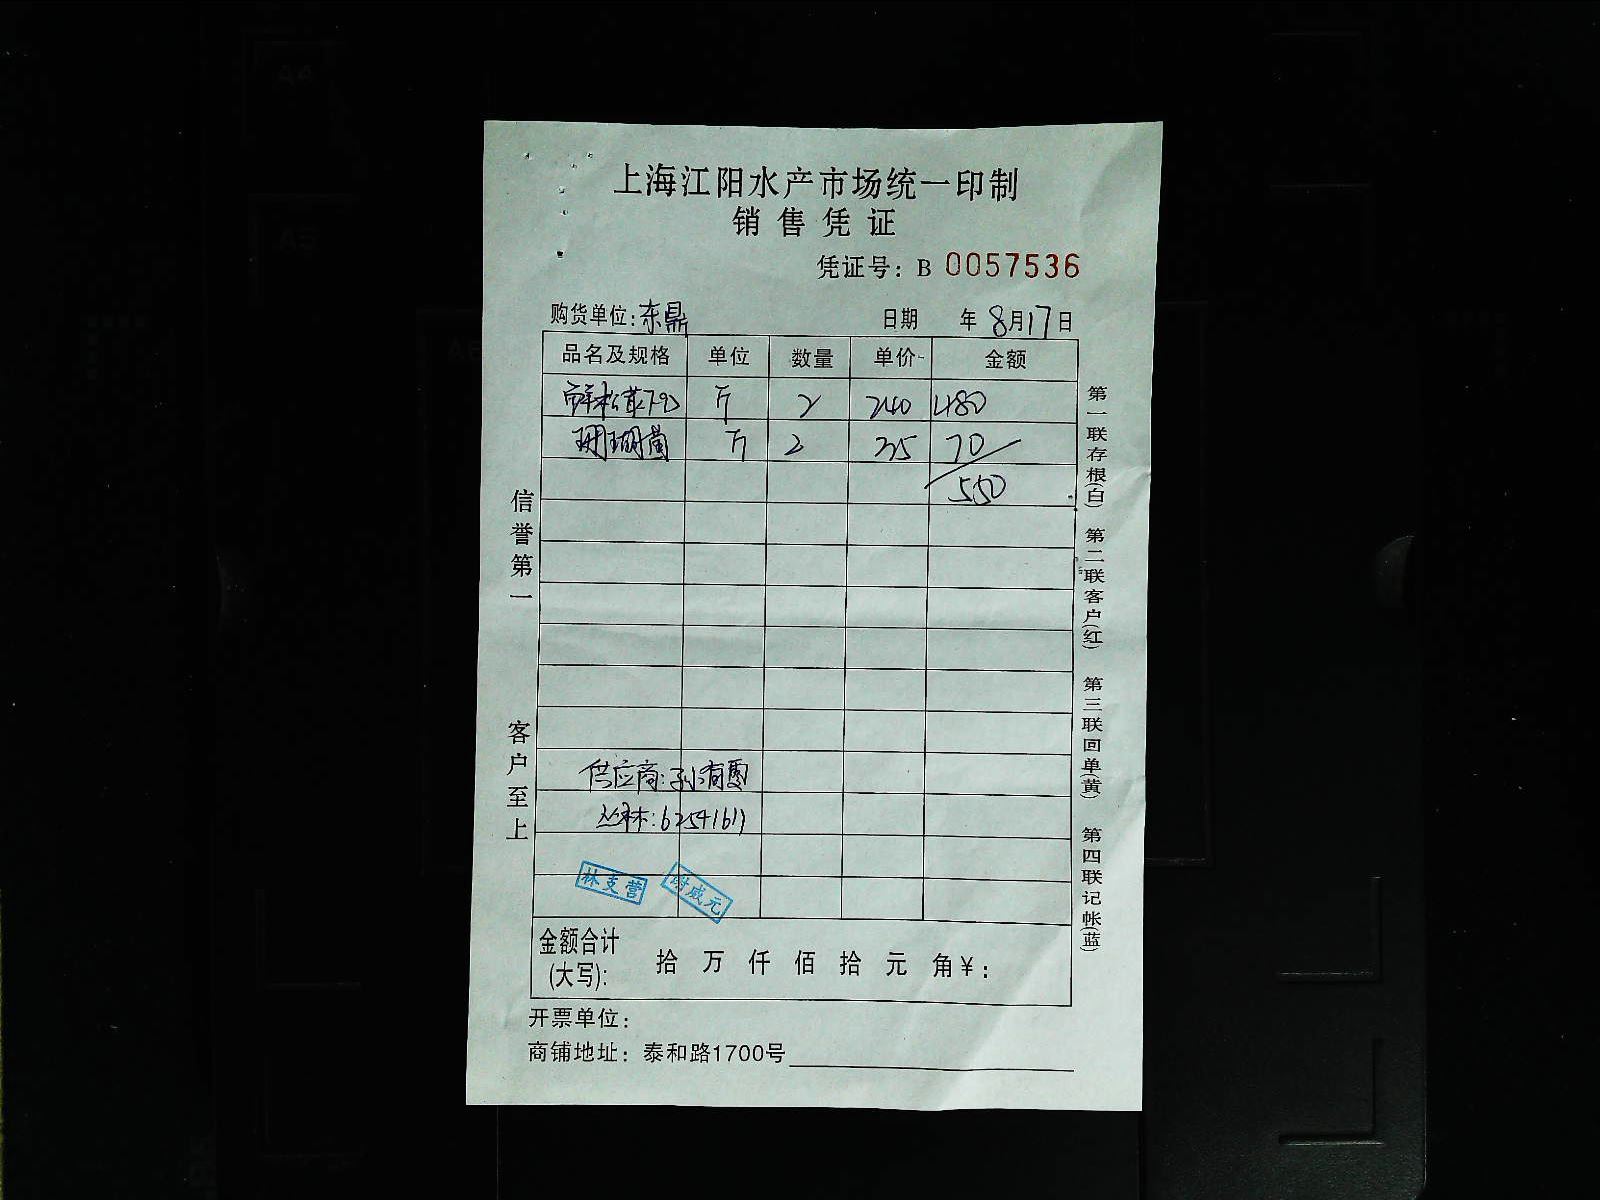 上海江阳水产市场统一印制
销售凭证
凭证号：B 0057536
购货单位：东鼎 日期 年 8月17日
品名及规格 单位 数量 单价 金额
鲜松茸7-9 斤 2 240 480
珊瑚黄 斤 2 35 70
550
信誉第一
客户至上
供应商：孙有霞
丛林：62541611
林支营
谢威元
金额合计(大写)： 拾 万 仟 佰 拾 元 角 ¥：
开票单位：
商铺地址：泰和路1700号
第一联存根(白) 第二联客户(红) 第三联回单(黄) 第四联记帐(蓝)
A4
A5